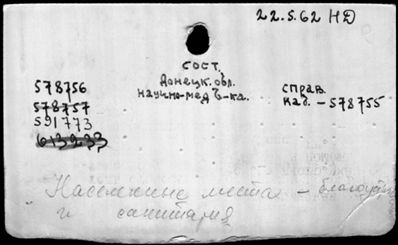 22.5.62 НД
сост.
Донецк. обл.
научно-мед б-ка.
578756
578757
591773
613233
справ.
каб. - 578755
Населенные места - благоустр
и санитария